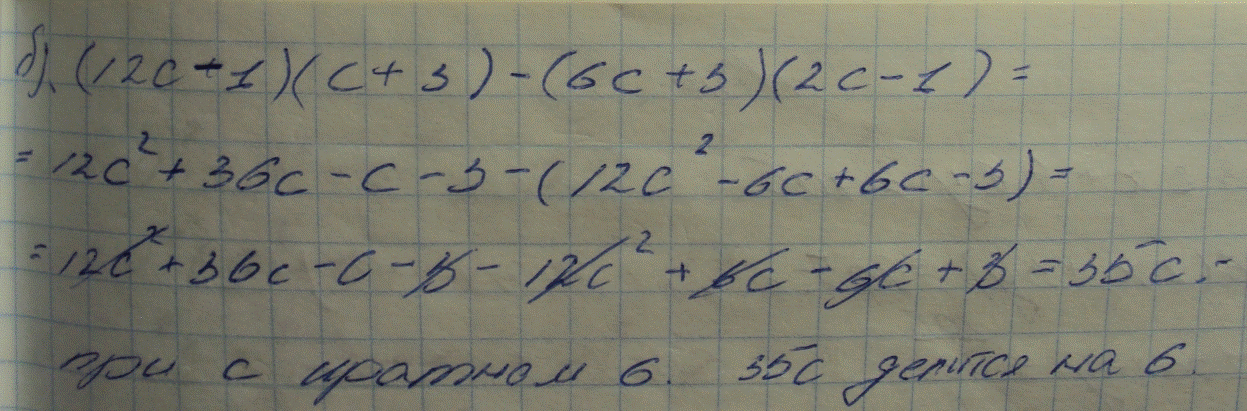 б). (12c - 1)(c + 3) - (6c + 3)(2c - 1) =
= 12c² + 36c - c - 3 - (12c² - 6c + 6c - 3) =
= 12c² + 36c - c - 3 - 12c² + 6c - 6c + 3 = 35c. -
при c кратном 6. 35c делится на 6.